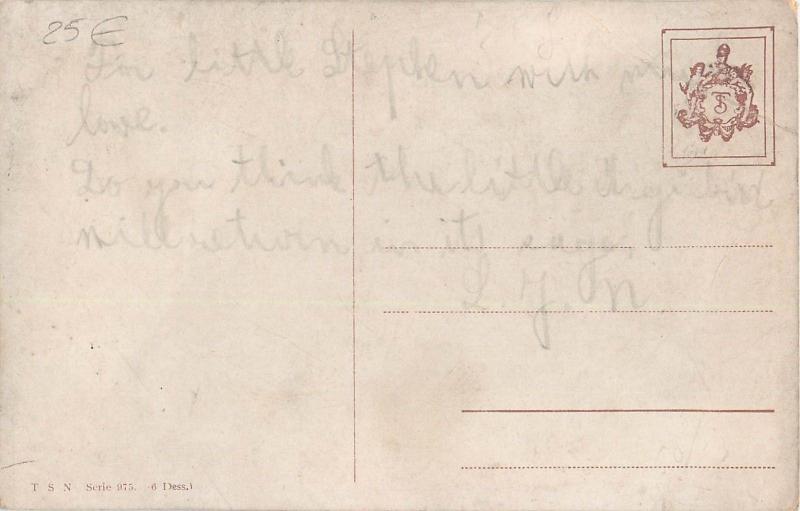 25 €
For little Stephen with much
love.
Do you think the little dicky bird
will return in its cage?
L. Y. N
TS
T S N Serie 975. (6 Dess.)